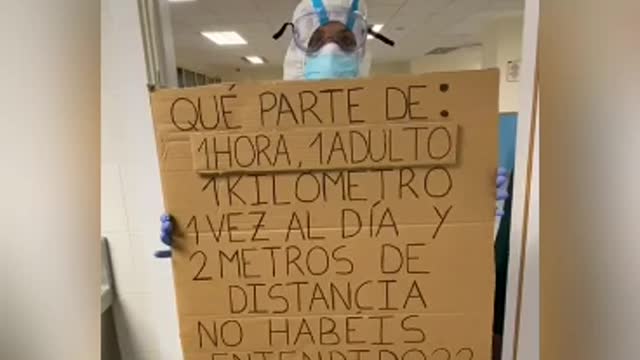 QUÉ PARTE DE:
1 HORA, 1 ADULTO
1 KILÓMETRO
1 VEZ AL DÍA Y
2 METROS DE
DISTANCIA
NO HABÉIS
ENTENDIDO??